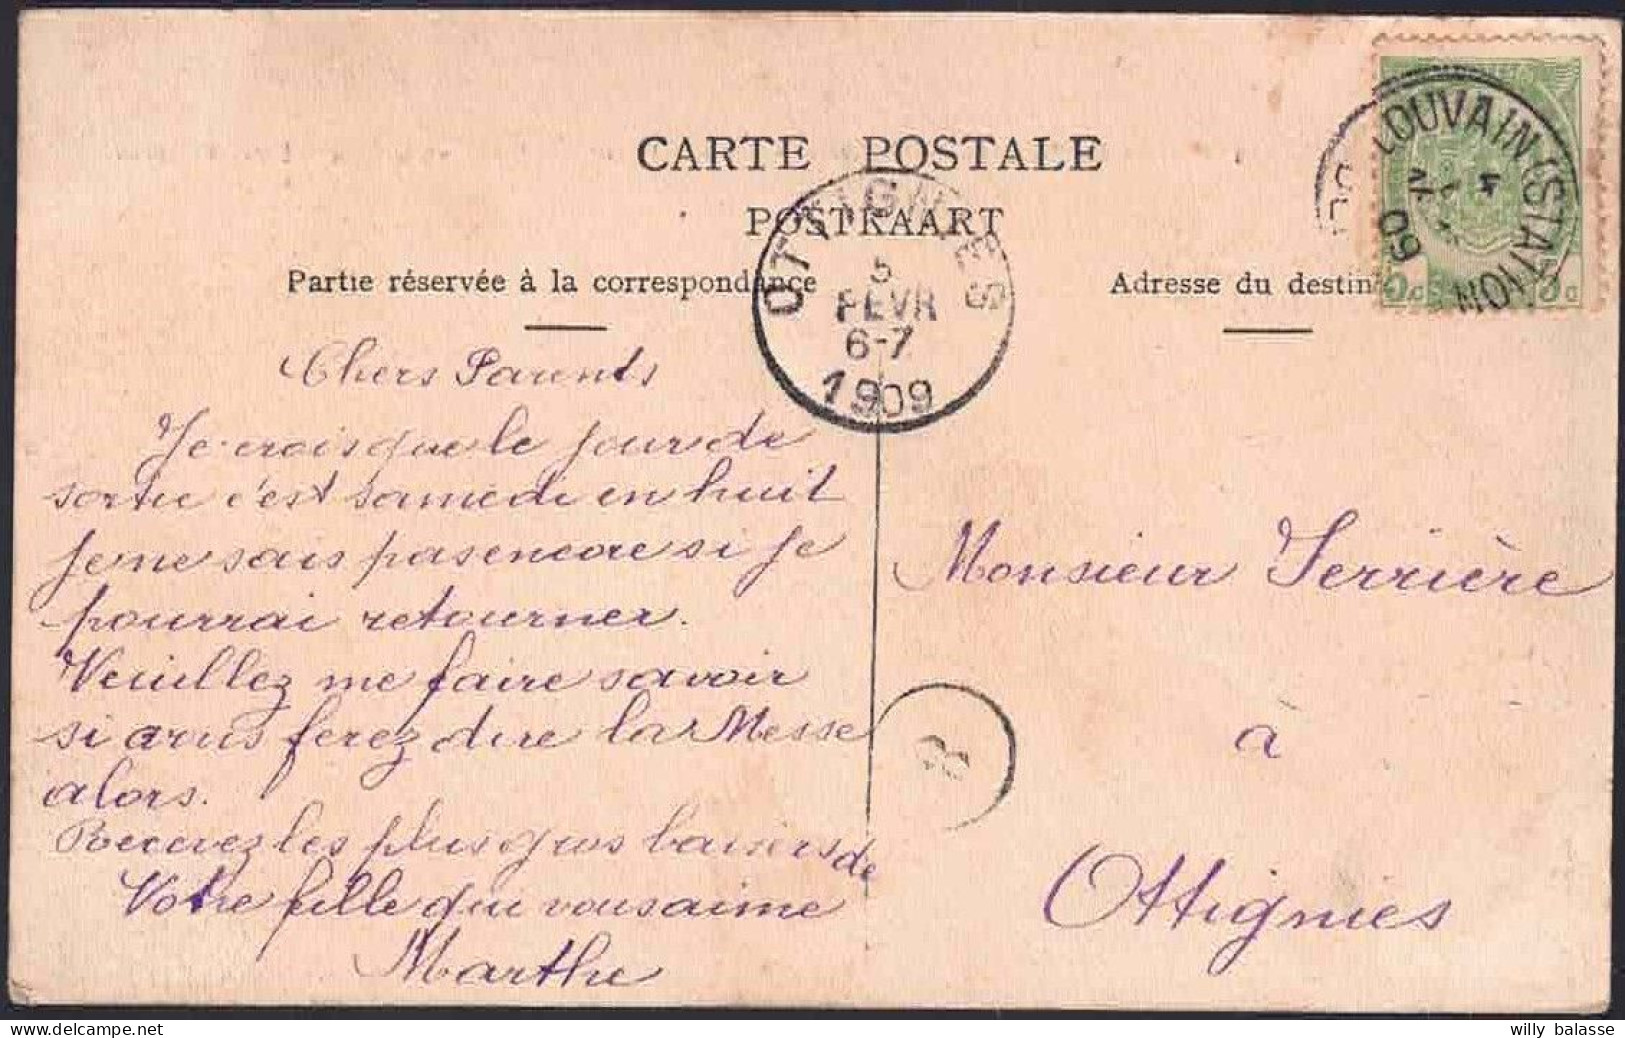 CARTE POSTALE
POSTKAART
Partie réservée à la correspondance
Adresse du destin
LOUVAIN (STATION
4
09
OTTIGNIES
5
FEVR
6-7
1909
Chers Parents
Je crois que le jour de
sortie c'est samedi en huit
je ne sais pas encore si je
pourrai retourner.
Veuillez me faire savoir
si vous ferez dire la Messe
alors.
Recevez les plus gros baisers de
Votre fille qui vous aime
Marthe
Monsieur Ferrière
à
Ottignies
willy balasse